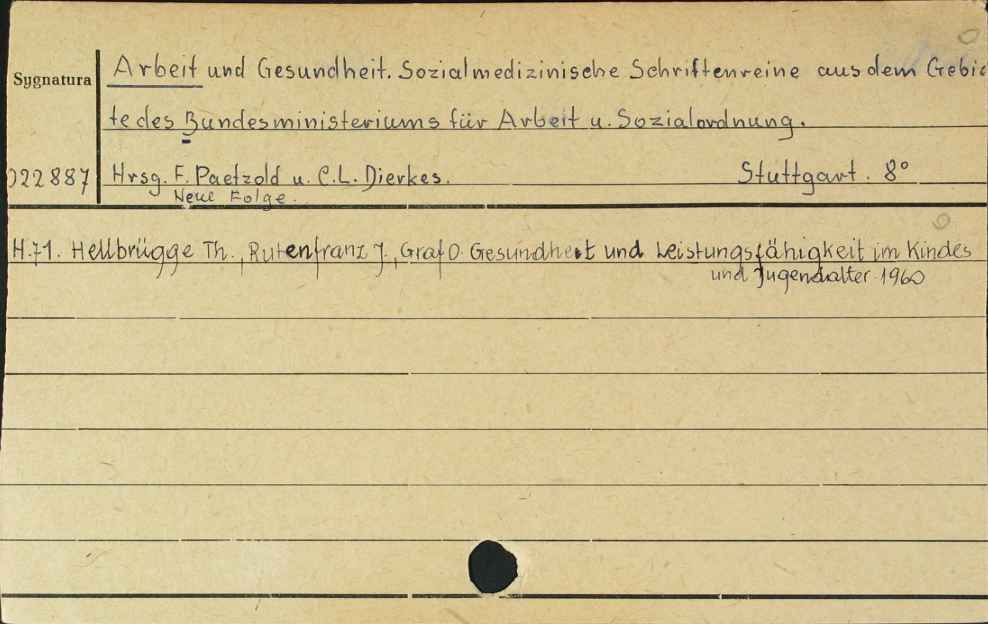 Arbeit und Gesundheit. Sozialmedizinische Schriftenreine aus dem Gebie
Sygnatura
te des Bundesministeriums für Arbeit u. Sozialordnung.
022887 Hrsg. F. Paetzold u. C.L. Dierkes. Stuttgart. 8°
Neue Folge.
H.71. Hellbrügge Th., Rutenfranz J., Graf O. Gesundheit und Leistungsfähigkeit im Kindes
und Jugendalter 1960